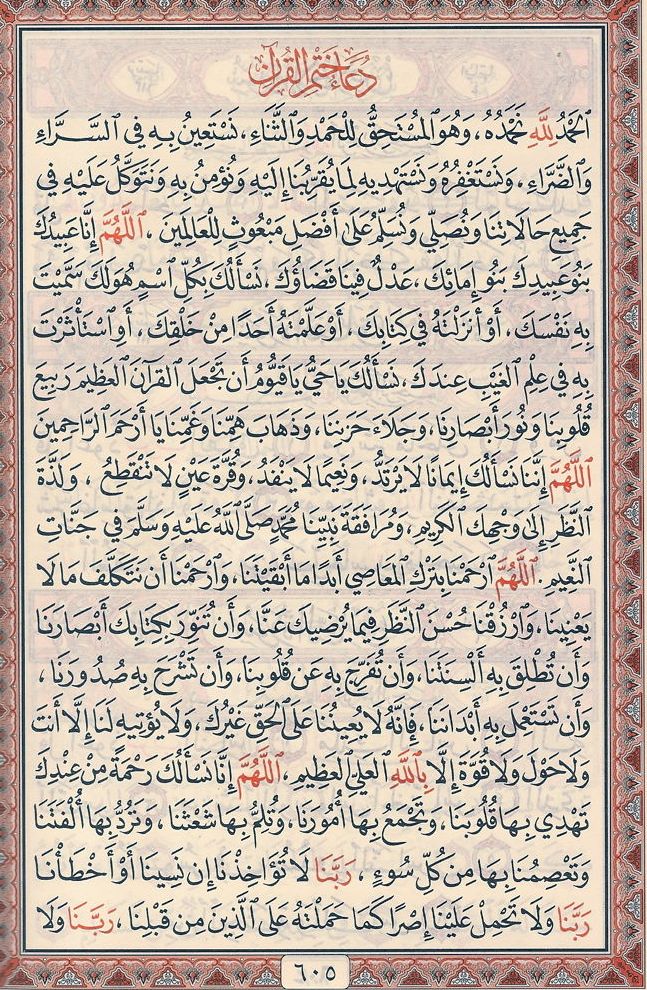 دُعَاءُ خَتْمِ الْقُرْآنِ
اَلْحَمْدُ لِلَّهِ نَحْمَدُهُ، وَهُوَ الْمُسْتَحِقُّ لِلْحَمْدِ وَالثَّنَاءِ، نَسْتَعِينُ بِهِ فِي السَّرَّاءِ
وَالضَّرَّاءِ، وَنَسْتَغْفِرُهُ وَنَسْتَهْدِيهِ لِمَا يُقَرِّبُنَا إِلَيْهِ وَنُؤْمِنُ بِهِ وَنَتَوَكَّلُ عَلَيْهِ فِي
جَمِيعِ حَالَاتِنَا وَنُصَلِّي وَنُسَلِّمُ عَلَى أَفْضَلِ مَبْعُوثٍ لِلْعَالَمِينَ، اَللَّهُمَّ إِنَّا عَبِيدُكَ
بَنُو عَبِيدِكَ بَنُو إِمَائِكَ، عَدْلٌ فِينَا قَضَاؤُكَ، نَسْأَلُكَ بِكُلِّ اسْمٍ هُوَ لَكَ سَمَّيْتَ
بِهِ نَفْسَكَ، أَوْ أَنْزَلْتَهُ فِي كِتَابِكَ، أَوْ عَلَّمْتَهُ أَحَدًا مِنْ خَلْقِكَ، أَوِ اسْتَأْثَرْتَ
بِهِ فِي عِلْمِ الْغَيْبِ عِنْدَكَ، نَسْأَلُكَ يَا حَيُّ يَا قَيُّومُ أَنْ تَجْعَلَ الْقُرْآنَ الْعَظِيمَ رَبِيعَ
قُلُوبِنَا وَنُورَ أَبْصَارِنَا، وَجَلَاءَ حَزَنِنَا، وَذَهَابَ هَمِّنَا وَغَمِّنَا يَا أَرْحَمَ الرَّاحِمِينَ
اَللَّهُمَّ إِنَّنَا نَسْأَلُكَ إِيمَانًا لَا يَرْتَدُّ، وَنَعِيمًا لَا يَنْفَدُ، وَقُرَّةَ عَيْنٍ لَا تَنْقَطِعُ، وَلَذَّةَ
النَّظَرِ إِلَى وَجْهِكَ الْكَرِيمِ، وَمُرَافَقَةَ نَبِيِّنَا مُحَمَّدٍ صَلَّى اللَّهُ عَلَيْهِ وَسَلَّمَ فِي جَنَّاتِ
النَّعِيمِ. اَللَّهُمَّ ارْحَمْنَا بِتَرْكِ الْمَعَاصِي أَبَدًا مَا أَبْقَيْتَنَا، وَارْحَمْنَا أَنْ نَتَكَلَّفَ مَا لَا
يَعْنِينَا، وَارْزُقْنَا حُسْنَ النَّظَرِ فِيمَا يُرْضِيكَ عَنَّا، وَأَنْ تُنَوِّرَ بِكِتَابِكَ أَبْصَارَنَا
وَأَنْ تُطْلِقَ بِهِ أَلْسِنَتَنَا، وَأَنْ تُفَرِّجَ بِهِ عَنْ قُلُوبِنَا، وَأَنْ تَشْرَحَ بِهِ صُدُورَنَا،
وَأَنْ تَسْتَعْمِلَ بِهِ أَبْدَانَنَا، فَإِنَّهُ لَا يُعِينُنَا عَلَى الْحَقِّ غَيْرُكَ، وَلَا يُؤْتِيهِ لَنَا إِلَّا أَنْتَ
وَلَا حَوْلَ وَلَا قُوَّةَ إِلَّا بِاللَّهِ الْعَلِيِّ الْعَظِيمِ، اَللَّهُمَّ إِنَّا نَسْأَلُكَ رَحْمَةً مِنْ عِنْدِكَ
تَهْدِي بِهَا قُلُوبَنَا، وَتَجْمَعُ بِهَا أُمُورَنَا، وَتُلِمُّ بِهَا شَعَثَنَا، وَتَرُدُّ بِهَا أُلْفَتَنَا
وَتَعْصِمُنَا بِهَا مِنْ كُلِّ سُوءٍ، رَبَّنَا لَا تُؤَاخِذْنَا إِنْ نَسِينَا أَوْ أَخْطَأْنَا
رَبَّنَا وَلَا تَحْمِلْ عَلَيْنَا إِصْرًا كَمَا حَمَلْتَهُ عَلَى الَّذِينَ مِنْ قَبْلِنَا، رَبَّنَا وَلَا
٦٠٥